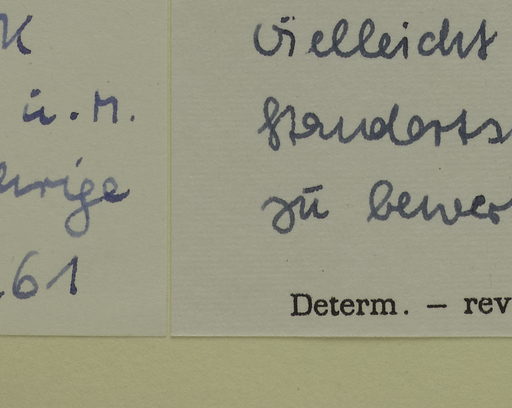 K
ü. M.
hrige
61
Vielleicht
Standorts
zu bewer
Determ. – rev